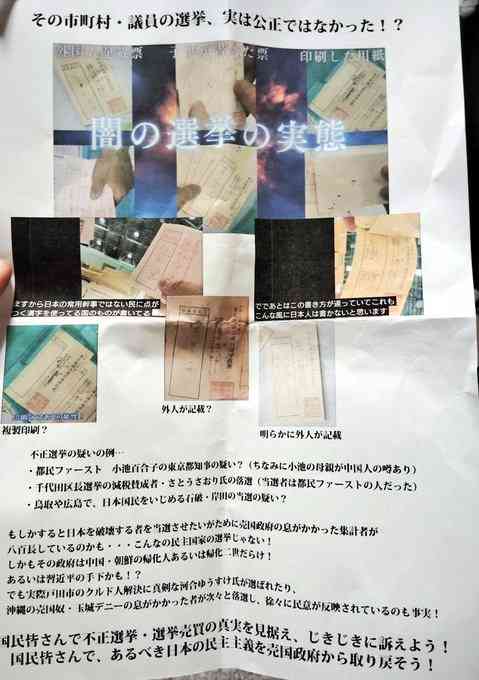 その市町村・議員の選挙、実は公正ではなかった！？
印刷した用紙
闇の選挙の実態
ますから日本の常用幹事ではない民に点が
つく漢字を使ってる国のものが書いてる
でであとはこの書き方が違っていてこれも
こんな風に日本人は書かないと思います
複製印刷？
外人が記載？
明らかに外人が記載
不正選挙の疑いの例…
・都民ファースト　小池百合子の東京都知事の疑い？（ちなみに小池の母親が中国人の噂あり）
・千代田区長選挙の減税賛成者・さとうさおり氏の落選（当選者は都民ファーストの人だった）
・鳥取や広島で、日本国民をいじめる石破・岸田の当選の疑い？
もしかすると日本を破壊する者を当選させたいがために売国政府の息がかかった集計者が
八百長しているのかも・・・こんなの民主国家の選挙じゃない！
しかもその政府は中国・朝鮮の帰化人あるいは帰化二世だらけ！
あるいは習近平の手下かも！？
でも実際戸田市のクルド人解決に真剣な河合ゆうすけ氏が選ばれたり、
沖縄の売国奴・玉城デニーの息がかかった者が次々と落選し、徐々に民意が反映されているのも事実！
国民皆さんで不正選挙・選挙売買の真実を見据え、じきじきに訴えよう！
国民皆さんで、あるべき日本の民主主義を売国政府から取り戻そう！